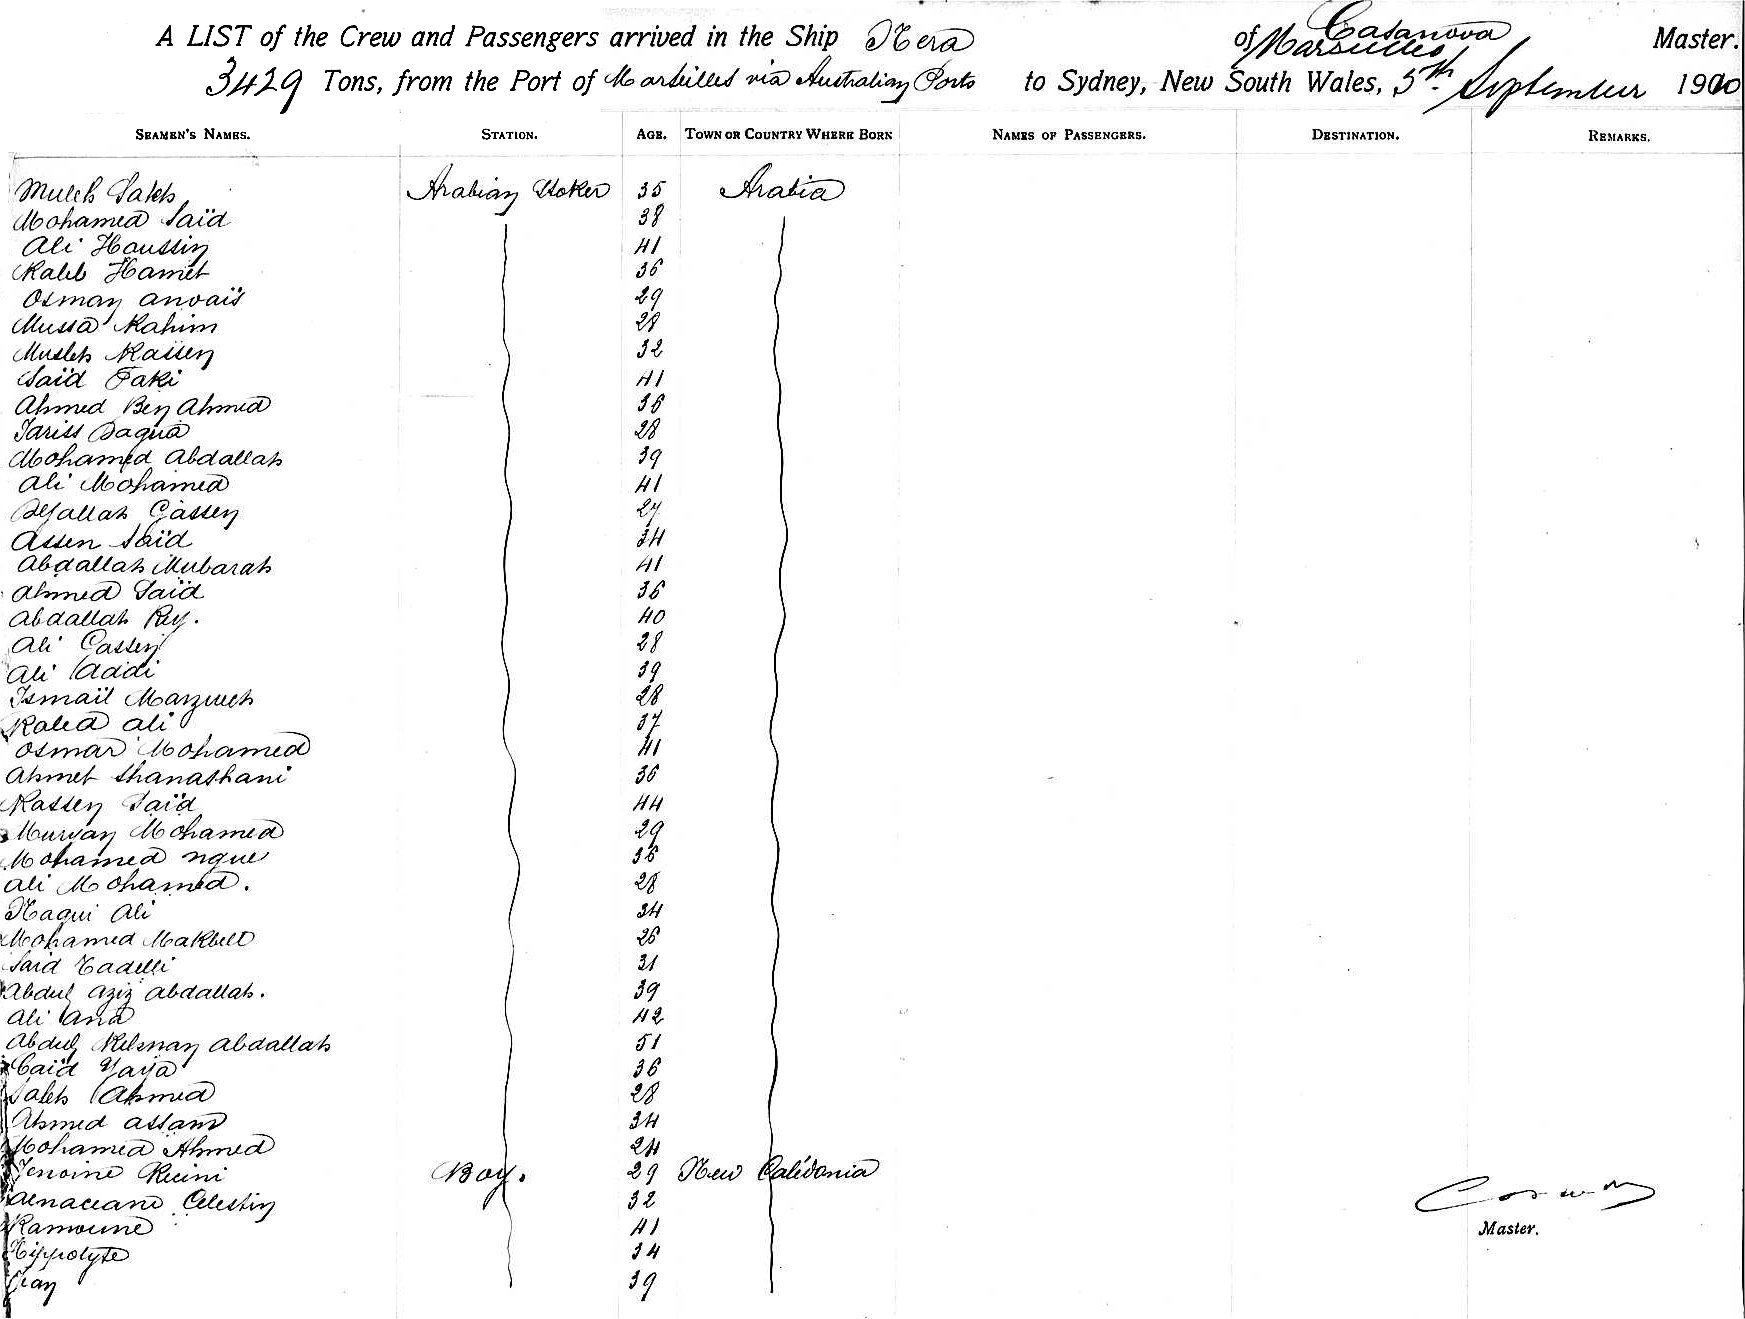 A LIST of the Crew and Passengers arrived in the Ship Nera of Marseilles Casanova Master.
3429 Tons, from the Port of Marseilles via Australian Ports to Sydney, New South Wales, 5th September 1900
SEAMEN'S NAMES. STATION. AGE. TOWN OR COUNTRY WHERE BORN NAMES OF PASSENGERS. DESTINATION. REMARKS.
Saleh Arabian Stoker 35 Arabia
Mohamed Saïd 38
Ali Houssin 41
Kaleb Hamet 36
Osman Anvaïs 29
Mussa Kahim 28
Musleh Kassen 32
Saïd Faki 41
Ahmed Ben Ahmed 36
Fariss Sagua 28
Mohamed Abdallah 39
Ali Mohamed 41
Gassen 27
Assen Saïd 34
Abdallah Mubarah 41
Ahmed Saïd 36
Abdallah 40
Ali Cassen 28
Ali Addi 39
Ismaïl 28
Kaled Ali 37
Osmar Mohamed 41
Ahmet Shanashani 36
Kassen Saïd 44
Murvan Mohamed 29
Mohamed ngue 36
Ali Mohamed. 28
Nagui Ali 34
Mohamed Makbelt 26
Said Tadelli 31
Abdul Aziz Abdallah. 39
Ali Ana 42
Abdul Abdallah 51
Caïd Yaya 36
Saleh Ahmed 28
Ahmed Assam 34
Mohamed Ahmed 24
Renini Boy. 29 New Calédonia
Celestin 32
Kamoune 41
Hippolyte 34
Jean 39
Master.